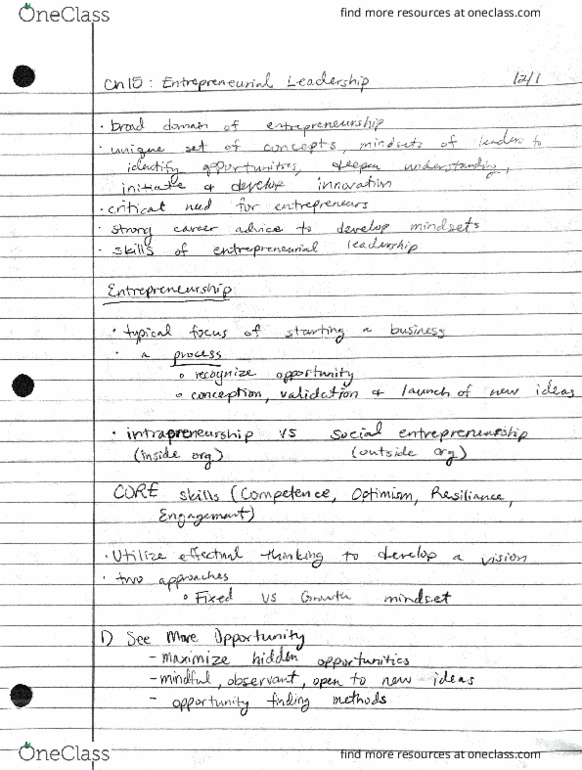 OneClass
find more resources at oneclass.com
Ch 15 : Entrepreneurial Leadership 12/1
· broad domain of entrepreneurship
· unique set of concepts, mindsets of leaders to
identify opportunities, deepen understanding,
initiate & develop innovation
· critical need for entrepreneurs
· strong career advice to develop mindsets
· skills of entrepreneurial leadership
Entrepreneurship
· typical focus of starting a business
· a process
o recognize opportunity
o conception, validation & launch of new ideas
· intrapreneurship vs social entrepreneurship
(inside org) (outside org)
CORE skills (Competence, Optimism, Resiliance,
Engagement)
· Utilize effectual thinking to develop a vision
· two approaches
o Fixed vs Growth mindset
1) See More Opportunity
- maximize hidden opportunities
- mindful, observant, open to new ideas
- opportunity finding methods
OneClass
find more resources at oneclass.com